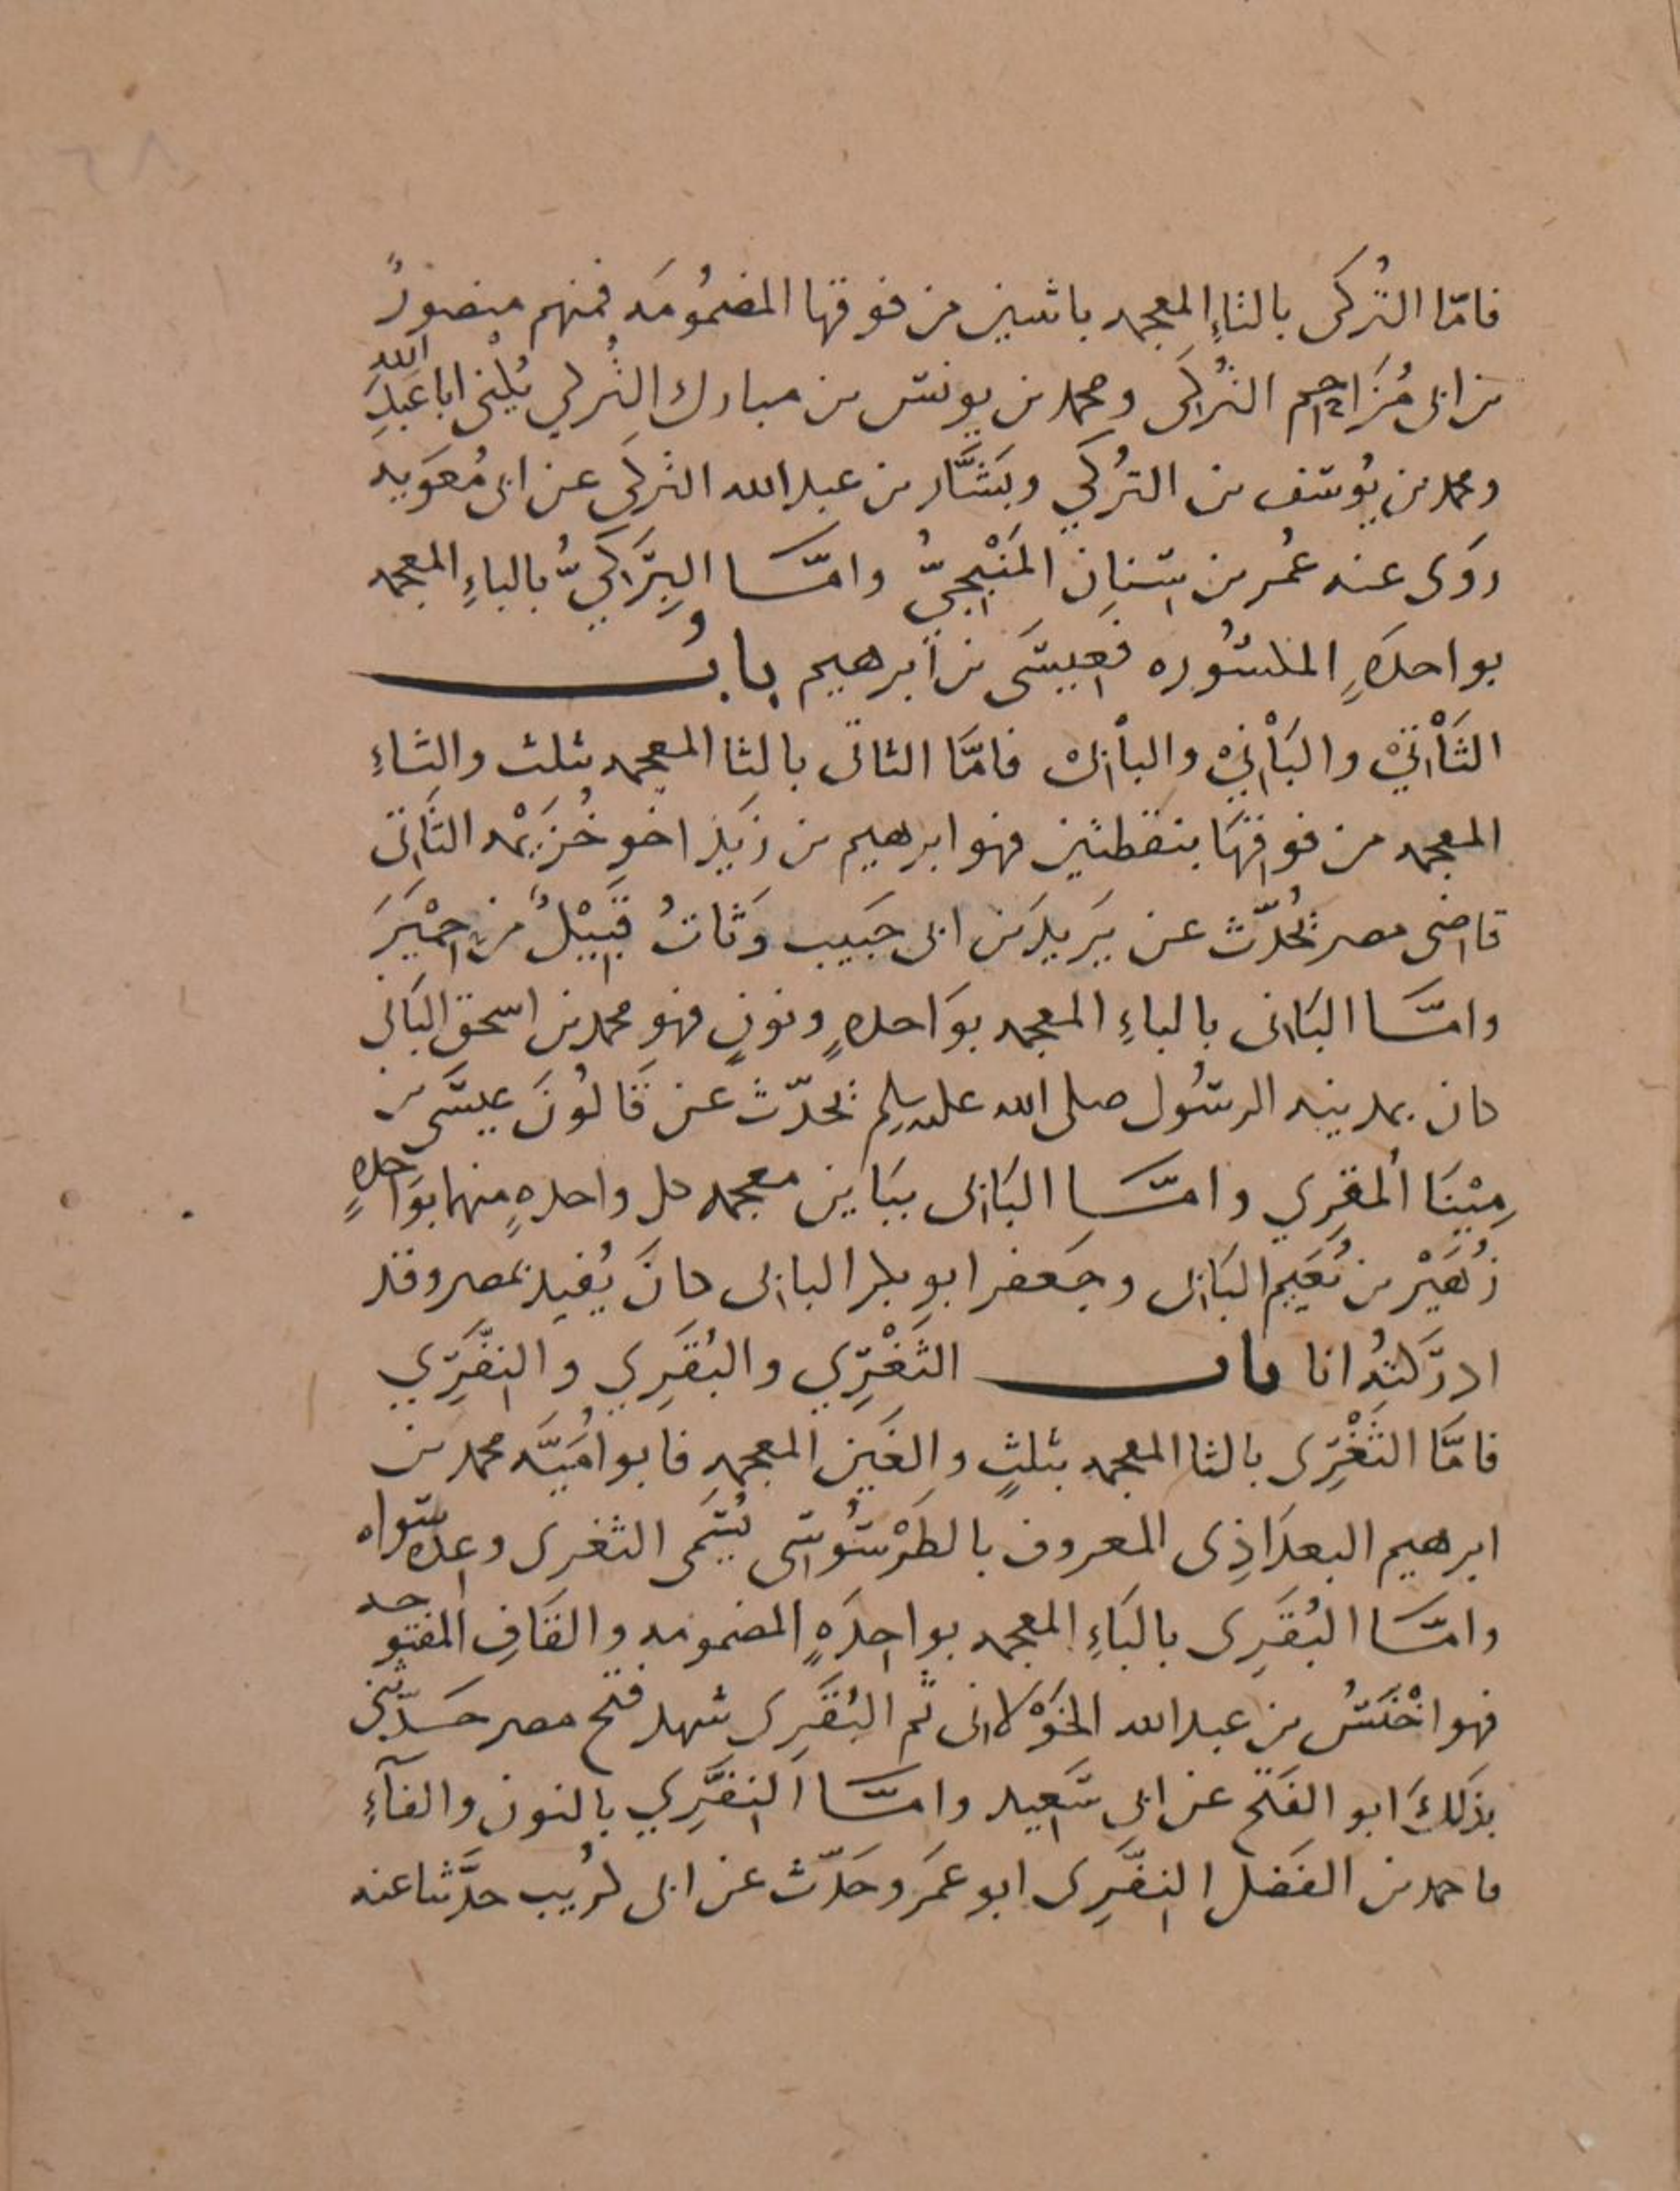 فامّا التُركى بالتاءِ المعجمه باثنين من فوقها المضمُومَه فمنهم منصورُ
بن ابى مُزَاحِم التُركى ومحمد بن يونس بن مبارك التُركي يُكْنى ابا عَبدِ الله
ومحمد بن يُوسف بن التُركي وبَشَّار بن عبد الله التركى عن ابى مُعَويه
روَى عنه عُمر بن سِنانِ المَنْبِجِيُّ وامّا البِرَكيُّ بالباءِ المعجمه
بواحدهٍ المكسُوره فعِيسَى بن ابرهيم بابُ
الثَاْتيْ والبَاْنيْ والباْبىْ فامَّا الثاتى بالثا المعجمه بثلث والتاءِ
المعجمه من فوقِهَا بنقطتين فهو ابرهيم بن زيَد اخو خُزَيْمه الثَاتى
قاضى مصر يُحدّث عن يَزيد بن ابى حَبيب وَثاتُ قَبِيْلٌ من حِمْيَرَ
وامّا البَانى بالباءِ المعجمه بوَاحدهٍ ونونٍ فهو محمد بن اسحق البَانى
كان بمدينه الرسُول صلى الله عليه وسلم يحدّث عن قَالُونَ عيسَى بن
مِيْنَا المقرِي وامّا البَابى ببَاين معجمه كل واحدهٍ منهما بوَاحدهٍ
زُهَيْر بن نُعَيم البَابى وجَعفر ابو بكر البابى كانَ يُفيد بمصر وقد
ادرَكتهُ انا باب الثَغْرِي والبُقَرِي والنِفَّرِي
فامَّا الثَغْرِى بالثا المعجمه بثلثٍ والغَين المعجمهِ فابو اُمَيَّه محمد بن
ابرهيم البغدَاذِى المعروف بالطَرْسُوسِى يُسَمى الثغرى وعِدّه سواه
وامّا البُقَرِى بالبَاءِ المعجمه بواحِدَهٍ المضمومه والقَافِ المفتوحه
فهو اخْنَسُ بن عبد الله الخَوْلانى ثم البُقَرِى شهد فتح مصر حَدّثنى
بذَلكَ ابو الفَتح عن ابى سَعِيد وامّا النِفَّرِي بالنون والفآءِ
فاحمد بن الفَضل النِفَّرِى ابو عمَرو حَدّث عن ابى كرُيب حدَّثنا عنه